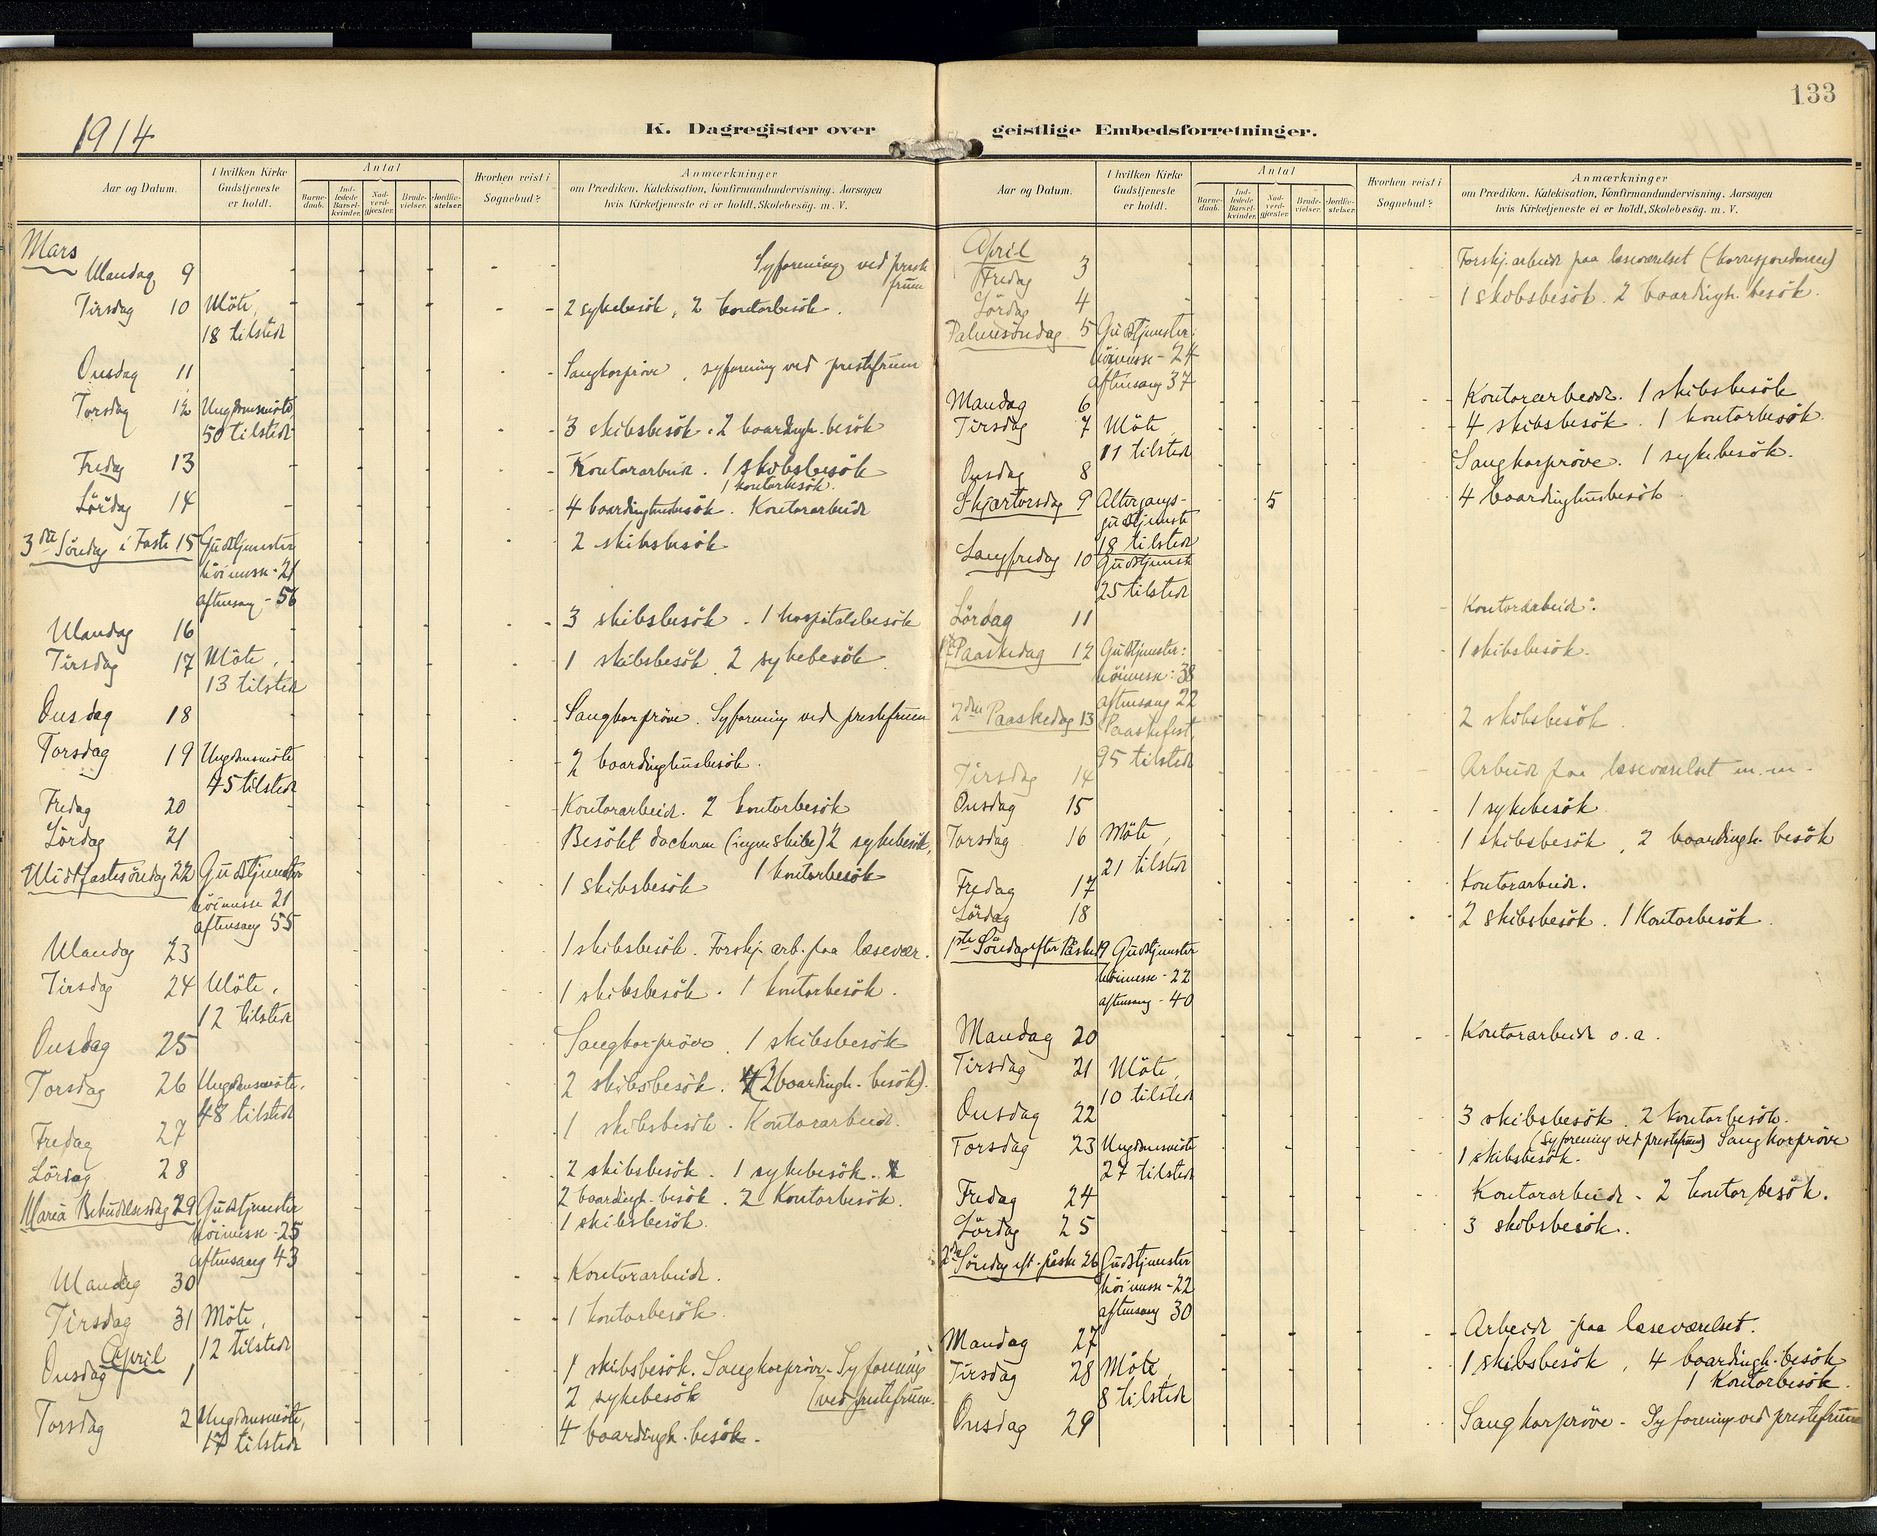 1914
K. Dagregister over
Aar og Datum.
I hvilken Kirke Gudstjeneste er holdt.
Antal
Barnedaab.
Indledede Barselkvinder.
Nadverdgjester.
Brudevielser.
Jordfæstelser.
Hvorhen reist i Sognebud?
Anmærkninger
om Prædiken, Katekisation, Konfirmandundervisning, Aarsagen
hvis Kirketjeneste ei er holdt, Skolebesøg. m. V.
Mars
Mandag 9 Syforening ved prestefruen
Tirsdag 10 Möte, 2 sykebesök, 2 kontorbesök.
18 tilstede
Onsdag 11 Sangkorpröve, syforening ved prestefruen
Torsdag 12 Ungdomsmöte
50 tilstede 3 skibsbesök. 2 boardingh.besök
Fredag 13 Kontorarbeide. 1 skibsbesök
1 kontorbesök.
Lördag 14 4 boardinghusbesök. Kontorarbeide
3die Söndag i Faste 15 Gudstjenester 2 skibsbesök
höimesse - 21
aftensang - 56
Mandag 16 3 skibsbesök. 1 hospitalsbesök
Tirsdag 17 Möte, 1 skibsbesök. 2 sykebesök.
13 tilstede
Onsdag 18 Sangkorpröve. Syforening ved prestefruen
Torsdag 19 Ungdomsmöte 2 boardinghusbesök.
45 tilstede
Fredag 20 Kontorarbeide. 2 kontorbesök
Lördag 21 Besökt dockerne (ingen skibe) 2 sykebesök,
1 kontorbesök
Midtfastesöndag 22 Gudstjenester 1 skibsbesök
höimesse 21
aftensang 55
Mandag 23 1 skibsbesök. Forskj. arb. paa læsevær.
Tirsdag 24 Möte, 1 skibsbesök. 1 kontorbesök.
12 tilstede
Onsdag 25 Sangkorpröve. 1 skibsbesök
Torsdag 26 Ungdomsmöte, 2 skibsbesök. (2 boardingh. besök).
48 tilstede
Fredag 27 1 skibsbesök. Kontorarbeide.
Lördag 28 2 skibsbesök. 1 sykebesök.
2 boardingh. besök. 2 Kontorbesök.
Mariä Bebudelsesdag 29 Gudstjenester 1 skibsbesök.
höimesse - 25
aftensang 43
Mandag 30 Kontorarbeide.
Tirsdag 31 Möte, 1 kontorbesök.
12 tilstede
April
Onsdag 1 1 skibsbesök. Sangkorpröve - Syforening
2 sykebesök (ved prestefruen.
Torsdag 2 Ungdomsmöte, 4 boardingh. besök.
17 tilstede
133
geistlige Embedsforretninger.
Aar og Datum.
I hvilken Kirke Gudstjeneste er holdt.
Antal
Barnedaab.
Indledede Barselkvinder.
Nadverdgjester.
Brudevielser.
Jordfæstelser.
Hvorhen reist i Sognebud?
Anmærkninger
om Prædiken, Katekisation, Konfirmandundervisning, Aarsagen
hvis Kirketjeneste ei er holdt, Skolebesøg. m. V.
April
Fredag 3 Forskj. arbeide paa læseværelset (korrespondanse)
Lördag 4 1 skibsbesök. 2 boardingh. besök.
Palmesöndag 5 Gudstjenester:
höimesse - 24
aftensang 37
Mandag 6 Kontorarbeide. 1 skibsbesök
Tirsdag 7 Möte, 4 skibsbesök. 1 kontorbesök.
11 tilstede
Onsdag 8 Sangkorpröve. 1 sykebesök.
Skjærtorsdag 9 Altergangs- 5 4 boardinghusbesök
gudstjeneste
18 tilstede
Langfredag 10 Gudstjeneste
25 tilstede
Lördag 11 Kontorarbeide.
1ste Paaskedag 12 Gudstjenester: 1 skibsbesök.
höimesse: 38
aftensang 22
2den Paaskedag 13 Paaskefest, 2 skibsbesök.
95 tilstede
Tirsdag 14 Arbeide paa læseværelset m.m.
Onsdag 15 1 sykebesök.
Torsdag 16 Möte, 1 skibsbesök, 2 boardingh. besök
21 tilstede
Fredag 17 Kontorarbeide.
Lördag 18 2 skibsbesök. 1 Kontorbesök.
1ste Söndag efter Påske 19 Gudstjenester
höimesse - 22
aftensang - 40
Mandag 20 Kontorarbeide o.a.
Tirsdag 21 Möte,
10 tilstede
Onsdag 22 3 skibsbesök. 2 kontorbesök.
(Syforening ved prestefruen) Sangkorpröve
Torsdag 23 Ungdomsmöte 1 skibsbesök.
27 tilstede
Fredag 24 Kontorarbeide - 2 kontorbesök.
Lördag 25 3 skibsbesök.
2den Söndag eft. påske 26 Gudstjenester
höimesse - 22
aftensang 30
Mandag 27 Arbeide paa læseværelset.
Tirsdag 28 Möte, 1 skibsbesök, 4 boardingh. besök
8 tilstede 1 Kontorbesök.
Onsdag 29 Sangkorpröve - Syforening ved prestefruen